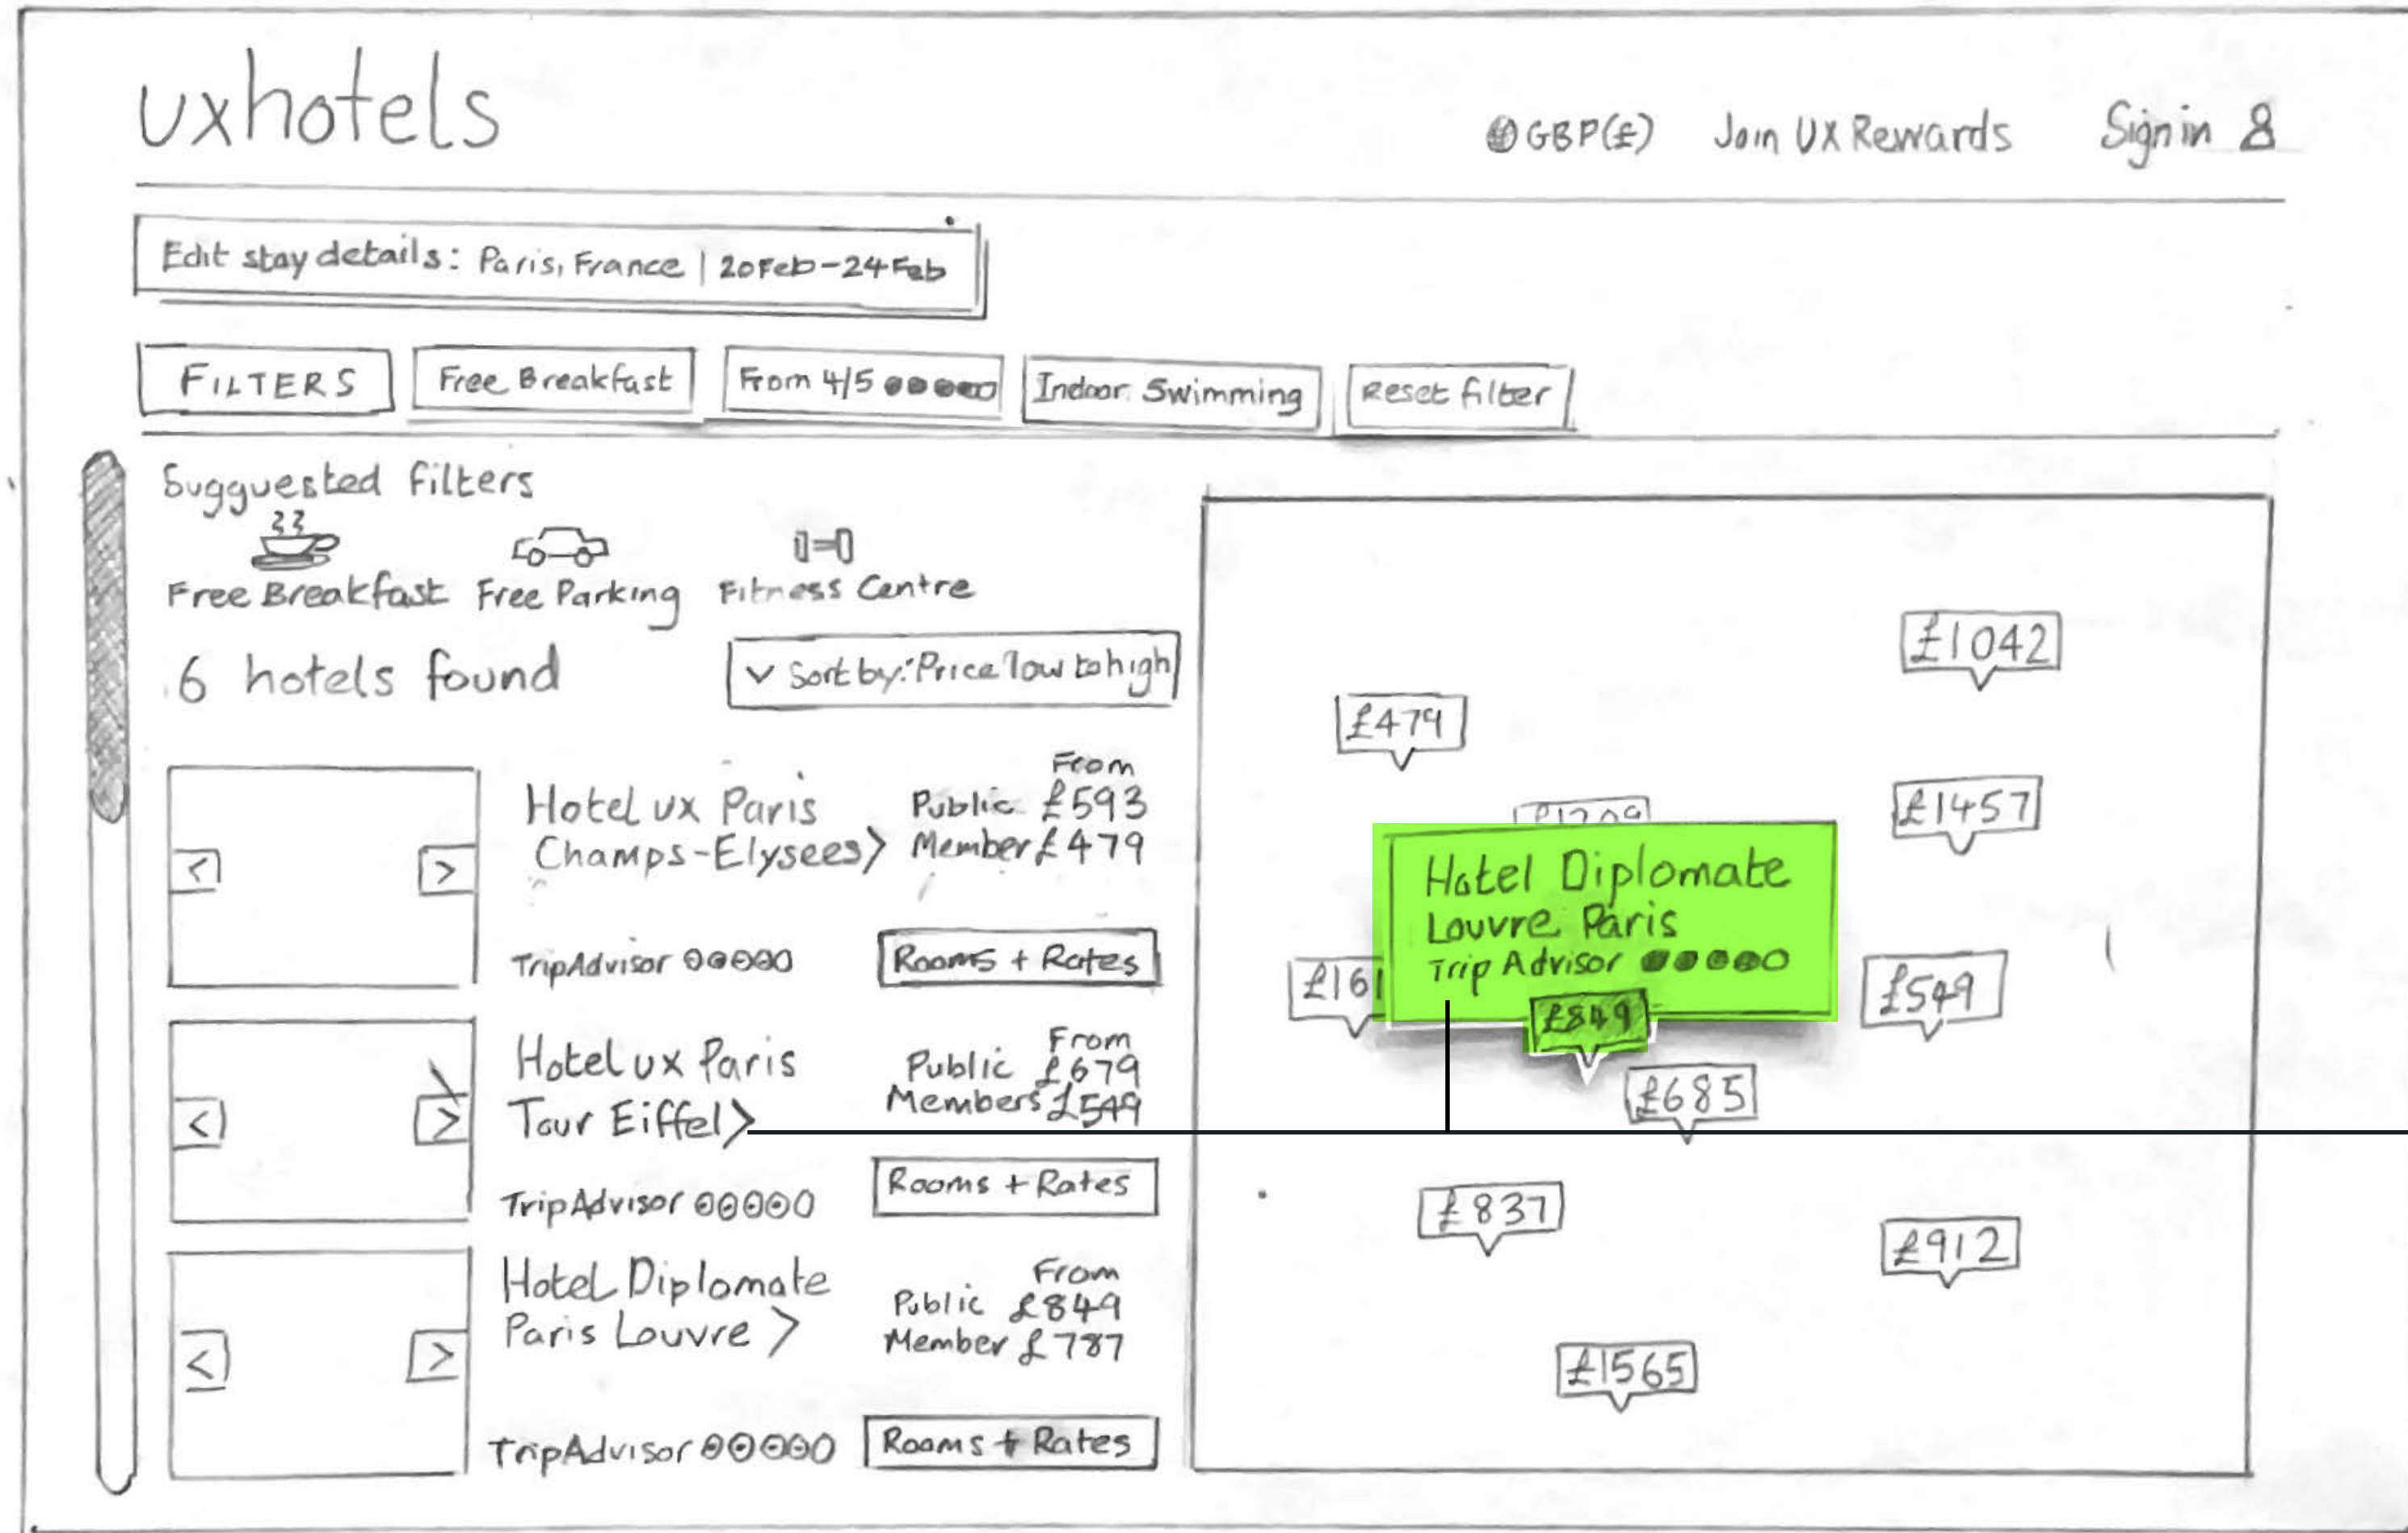 uxhotels
GBP(£) Join UX Rewards Sign in
Edit stay details: Paris, France | 20 Feb-24 Feb
FILTERS Free Breakfast From 4/5 Indoor Swimming Reset filter
Sugguested filters
Free Breakfast Free Parking Fitness Centre
6 hotels found
v Sort by: Price low to high
From
Hotel ux Paris Public £593
Champs-Elysees> Member £479
< >
TripAdvisor
Rooms + Rates
From
Hotel ux Paris Public £679
Tour Eiffel> Members £549
< >
TripAdvisor
Rooms + Rates
From
Hotel Diplomate Public £849
Paris Louvre > Member £787
< >
TripAdvisor
Rooms + Rates
£1042
£479
£1457
Hotel Diplomate
Louvre Paris
Trip Advisor
£161
£849
£549
£685
£837
£912
£1565